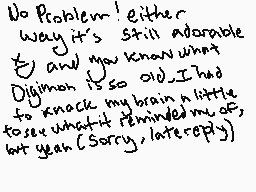 No Problem! either
way it's still adorable
and you know what
Digimon is so old, I had
to knack my brain a little
to see what it reminded me of,
but yeah (sorry, late reply)